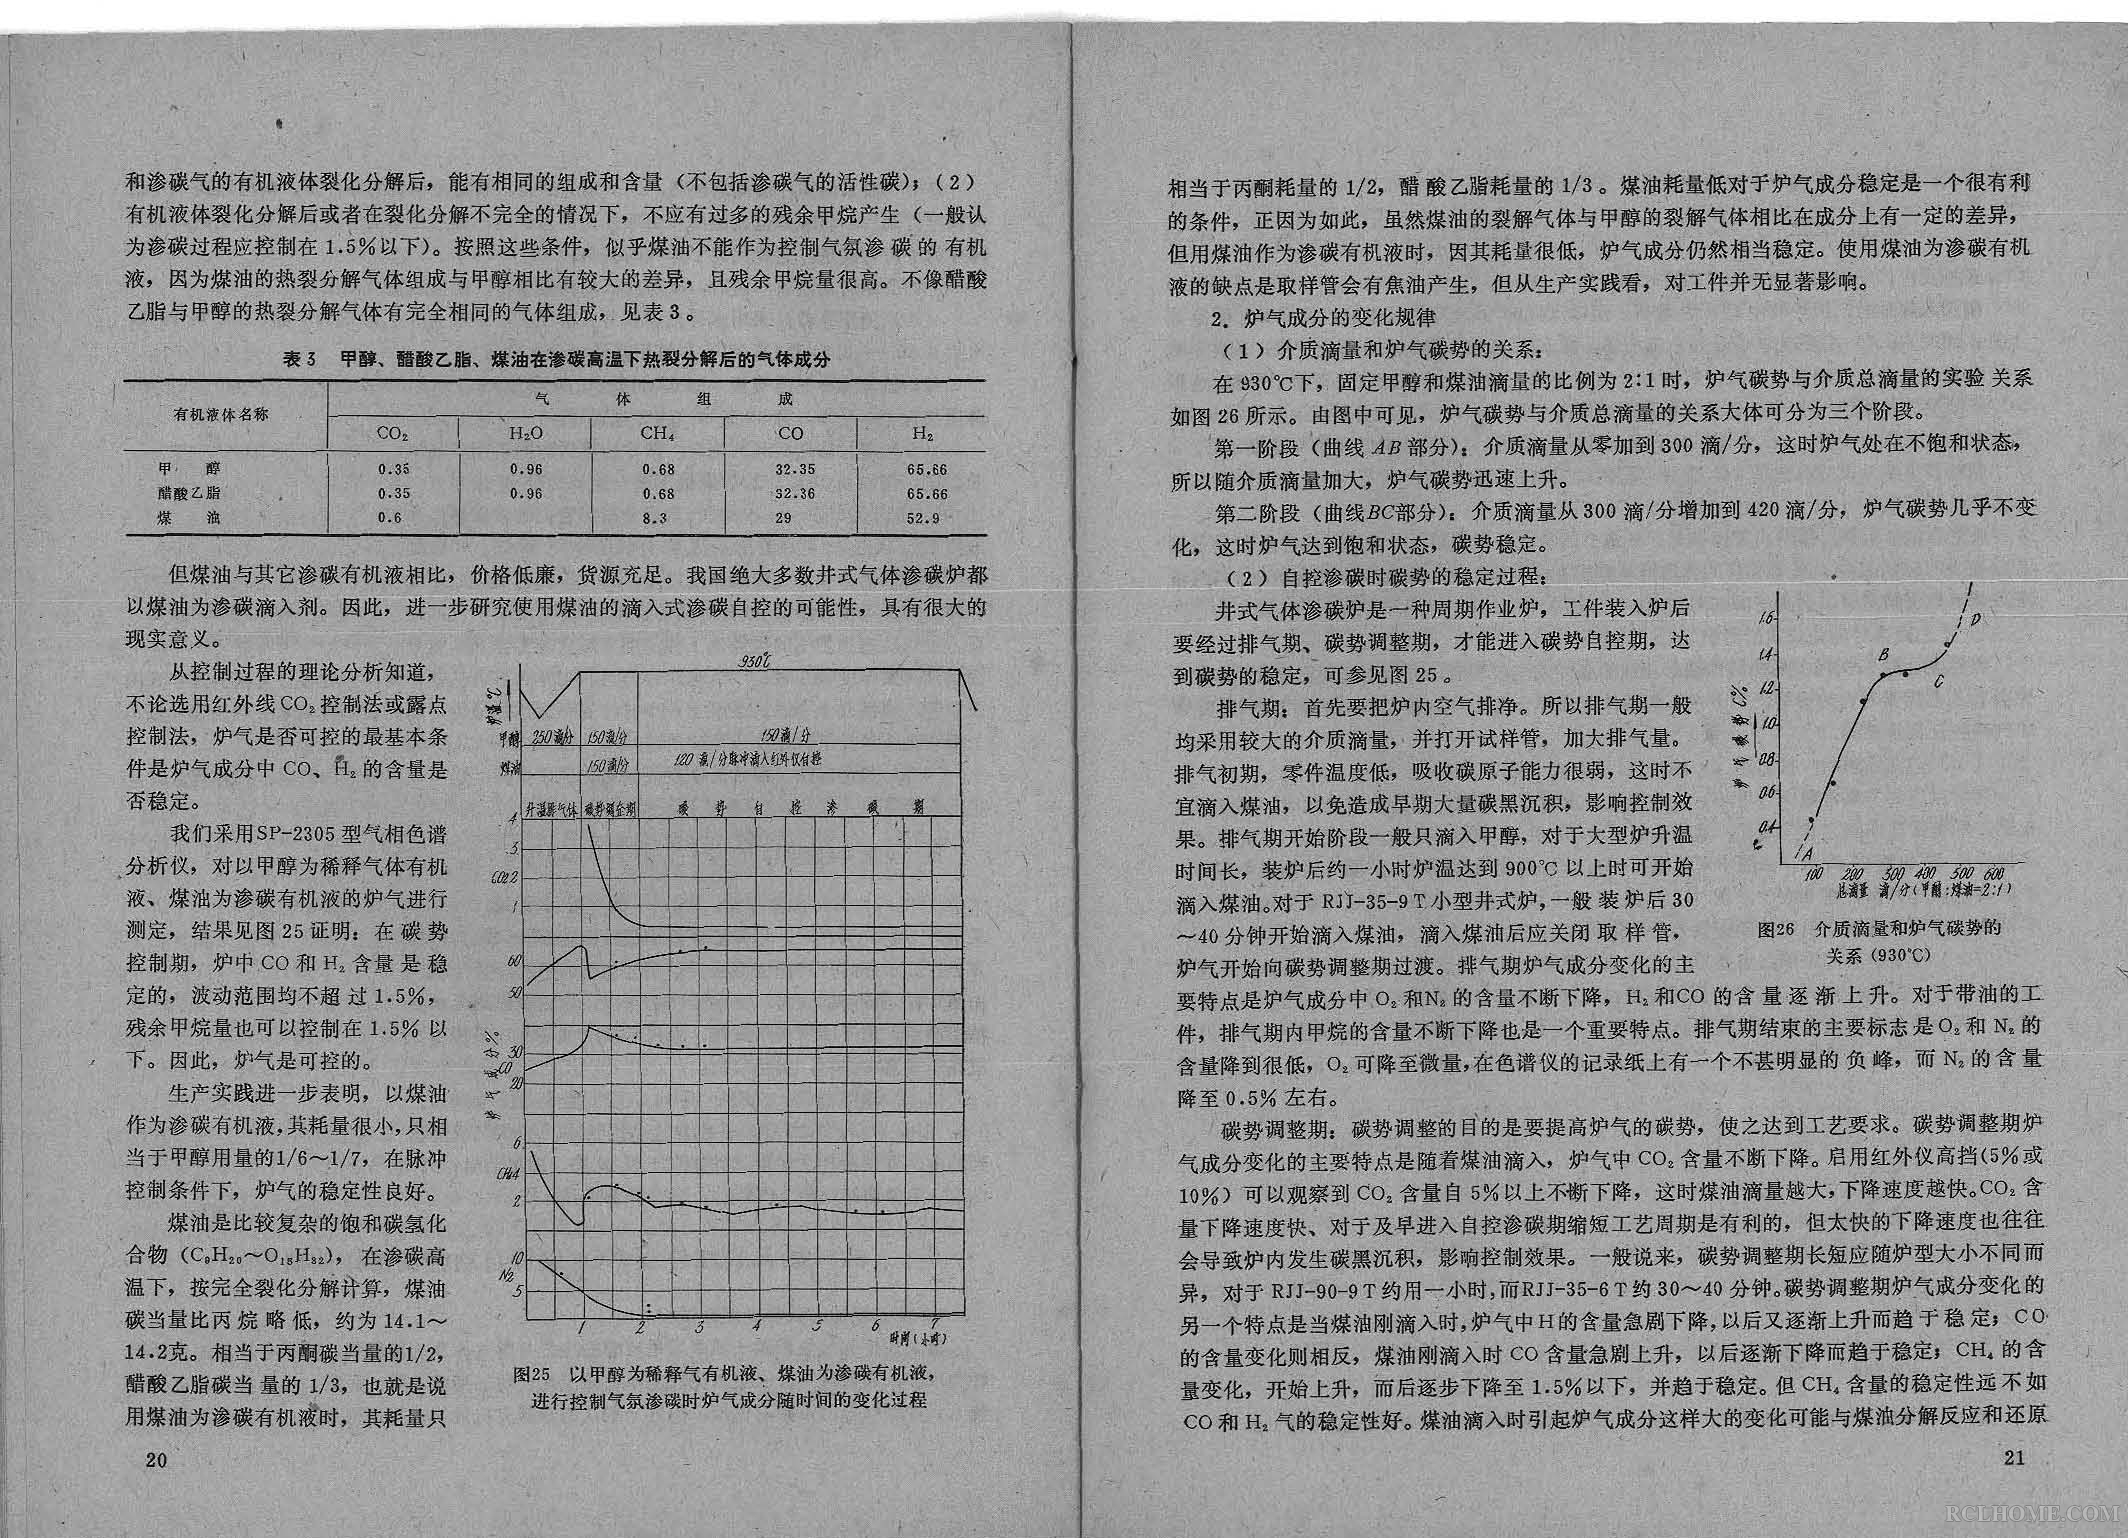 和渗碳气的有机液体裂化分解后，能有相同的组成和含量（不包括渗碳气的活性碳）；（2）
有机液体裂化分解后或者在裂化分解不完全的情况下，不应有过多的残余甲烷产生（一般认
为渗碳过程应控制在1.5%以下）。按照这些条件，似乎煤油不能作为控制气氛渗碳的有机
液，因为煤油的热裂分解气体组成与甲醇相比有较大的差异，且残余甲烷量很高。不像醋酸
乙脂与甲醇的热裂分解气体有完全相同的气体组成，见表3。
表3 甲醇、醋酸乙脂、煤油在渗碳高温下热裂分解后的气体成分
有机液体名称 气体组成
CO₂ H₂O CH₄ CO H₂
甲醇 0.35 0.96 0.68 32.35 65.66
醋酸乙脂 0.35 0.96 0.68 32.36 65.66
煤油 0.6 8.3 29 52.9
但煤油与其它渗碳有机液相比，价格低廉，货源充足。我国绝大多数井式气体渗碳炉都
以煤油为渗碳滴入剂。因此，进一步研究使用煤油的滴入式渗碳自控的可能性，具有很大的
现实意义。
从控制过程的理论分析知道，
不论选用红外线CO₂控制法或露点
控制法，炉气是否可控的最基本条
件是炉气成分中CO、H₂的含量是
否稳定。
我们采用SP-2305型气相色谱
分析仪，对以甲醇为稀释气体有机
液、煤油为渗碳有机液的炉气进行
测定，结果见图25证明：在碳势
控制期，炉中CO和H₂含量是稳
定的，波动范围均不超过1.5%，
残余甲烷量也可以控制在1.5%以
下。因此，炉气是可控的。
生产实践进一步表明，以煤油
作为渗碳有机液，其耗量很小，只相
当于甲醇用量的1/6～1/7，在脉冲
控制条件下，炉气的稳定性良好。
煤油是比较复杂的饱和碳氢化
合物（C₉H₂₀～O₁₅H₃₂），在渗碳高
温下，按完全裂化分解计算，煤油
碳当量比丙烷略低，约为14.1～
14.2克。相当于丙酮碳当量的1/2，
醋酸乙脂碳当量的1/3，也就是说
用煤油为渗碳有机液时，其耗量只
930℃
甲醇 250滴/分 150滴/分 150滴/分
煤油 150滴/分 120滴/分脉冲滴入红外仪自控
升温排气体 碳势调整期 碳势自控渗碳期
4
3
CO₂ 2
1
60
50
30
CO
20
6
CH4
2
10
N₂
5
1 2 3 4 5 6 7
时间（小时）
图25 以甲醇为稀释气有机液、煤油为渗碳有机液，
进行控制气氛渗碳时炉气成分随时间的变化过程
20
相当于丙酮耗量的1/2，醋酸乙脂耗量的1/3。煤油耗量低对于炉气成分稳定是一个很有利
的条件，正因为如此，虽然煤油的裂解气体与甲醇的裂解气体相比在成分上有一定的差异，
但用煤油作为渗碳有机液时，因其耗量很低，炉气成分仍然相当稳定。使用煤油为渗碳有机
液的缺点是取样管会有焦油产生，但从生产实践看，对工件并无显著影响。
2．炉气成分的变化规律
（1）介质滴量和炉气碳势的关系：
在930℃下，固定甲醇和煤油滴量的比例为2:1时，炉气碳势与介质总滴量的实验关系
如图26所示。由图中可见，炉气碳势与介质总滴量的关系大体可分为三个阶段。
第一阶段（曲线AB部分）：介质滴量从零加到300滴/分，这时炉气处在不饱和状态，
所以随介质滴量加大，炉气碳势迅速上升。
第二阶段（曲线BC部分）：介质滴量从300滴/分增加到420滴/分，炉气碳势几乎不变
化，这时炉气达到饱和状态，碳势稳定。
（2）自控渗碳时碳势的稳定过程：
井式气体渗碳炉是一种周期作业炉，工件装入炉后
要经过排气期、碳势调整期，才能进入碳势自控期，达
到碳势的稳定，可参见图25。
排气期：首先要把炉内空气排净。所以排气期一般
均采用较大的介质滴量，并打开试样管，加大排气量。
排气初期，零件温度低，吸收碳原子能力很弱，这时不
宜滴入煤油，以免造成早期大量碳黑沉积，影响控制效
果。排气期开始阶段一般只滴入甲醇，对于大型炉升温
时间长，装炉后约一小时炉温达到900℃以上时可开始
滴入煤油。对于RJJ-35-9T小型井式炉，一般装炉后30
～40分钟开始滴入煤油，滴入煤油后应关闭取样管，
炉气开始向碳势调整期过渡。排气期炉气成分变化的主
1.6
1.4
1.2
1.0
0.8
0.6
0.4
炉气碳势C%
A B C D
100 200 300 400 500 600
总滴量 滴/分（甲醇:煤油=2:1）
图26 介质滴量和炉气碳势的
关系（930℃）
要特点是炉气成分中O₂和N₂的含量不断下降，H₂和CO的含量逐渐上升。对于带油的工
件，排气期内甲烷的含量不断下降也是一个重要特点。排气期结束的主要标志是O₂和N₂的
含量降到很低，O₂可降至微量，在色谱仪的记录纸上有一个不甚明显的负峰，而N₂的含量
降至0.5%左右。
碳势调整期：碳势调整的目的是要提高炉气的碳势，使之达到工艺要求。碳势调整期炉
气成分变化的主要特点是随着煤油滴入，炉气中CO₂含量不断下降。启用红外仪高挡（5%或
10%）可以观察到CO₂含量自5%以上不断下降，这时煤油滴量越大，下降速度越快。CO₂含
量下降速度快、对于及早进入自控渗碳期缩短工艺周期是有利的，但太快的下降速度也往往
会导致炉内发生碳黑沉积，影响控制效果。一般说来，碳势调整期长短应随炉型大小不同而
异，对于RJJ-90-9T约用一小时，而RJJ-35-6T约30～40分钟。碳势调整期炉气成分变化的
另一个特点是当煤油刚滴入时，炉气中H的含量急剧下降，以后又逐渐上升而趋于稳定；CO
的含量变化则相反，煤油刚滴入时CO含量急剧上升，以后逐渐下降而趋于稳定；CH₄的含
量变化，开始上升，而后逐步下降至1.5%以下，并趋于稳定。但CH₄含量的稳定性远不如
CO和H₂气的稳定性好。煤油滴入时引起炉气成分这样大的变化可能与煤油分解反应和还原
21
RCLHOME.COM